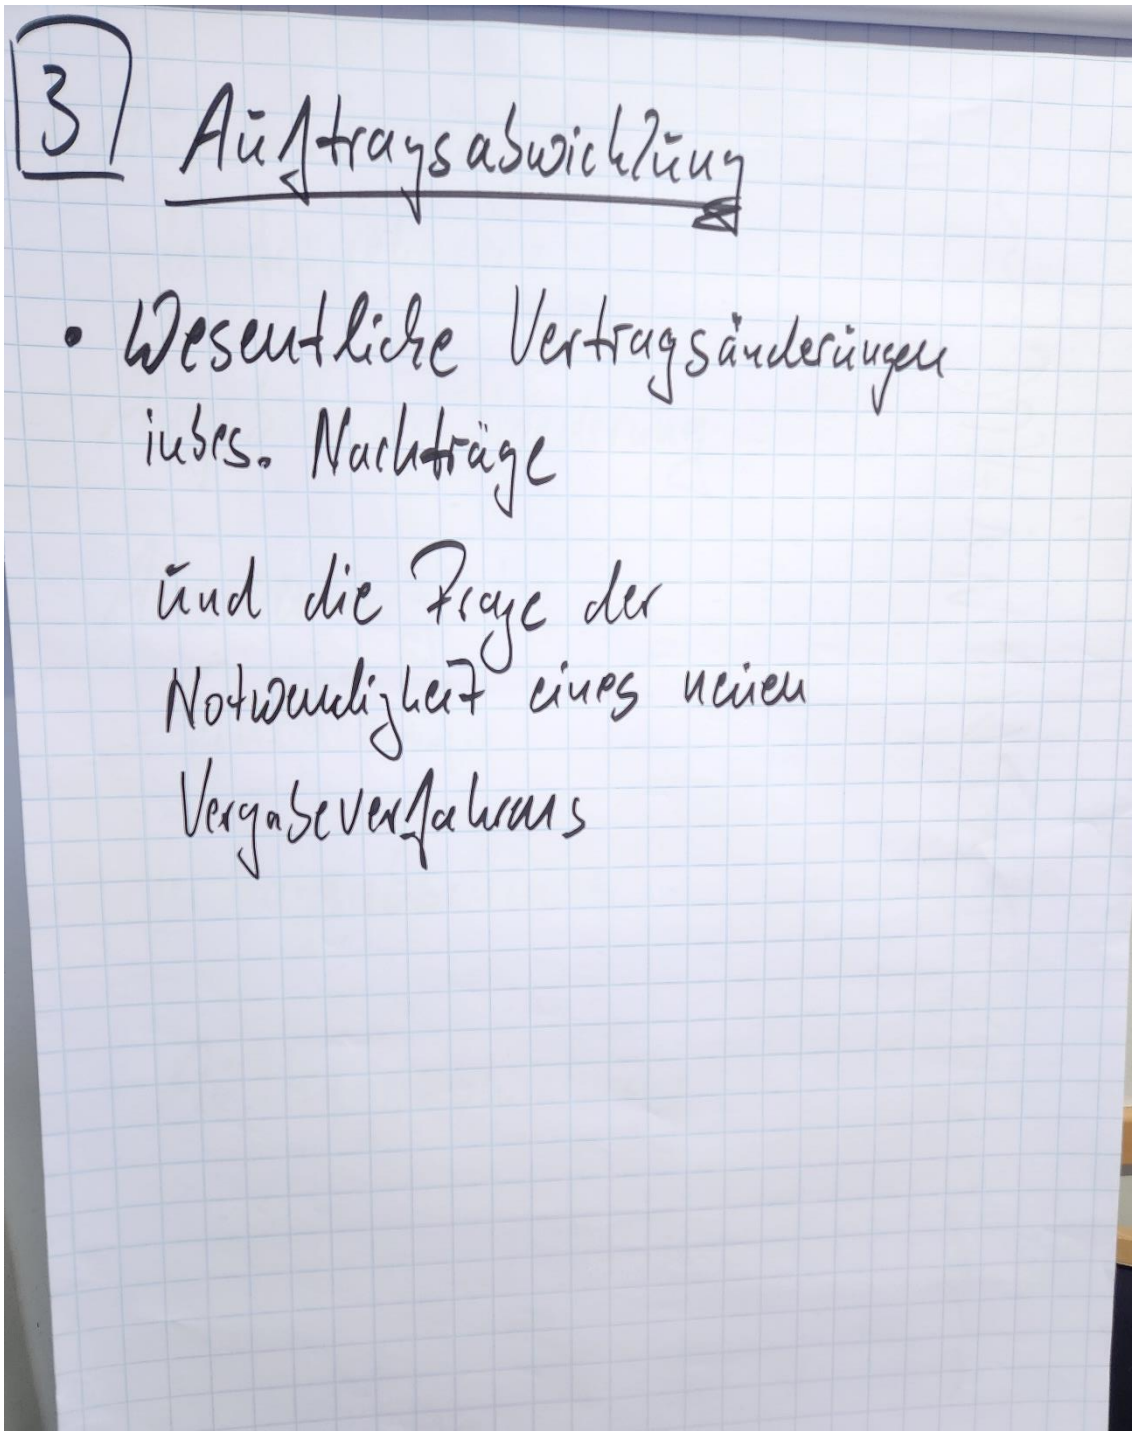 3
Auftragsabwicklung
• Wesentliche Vertragsänderungen
insbes. Nachträge
und die Frage der
Notwendigkeit eines neuen
Vergabeverfahrens